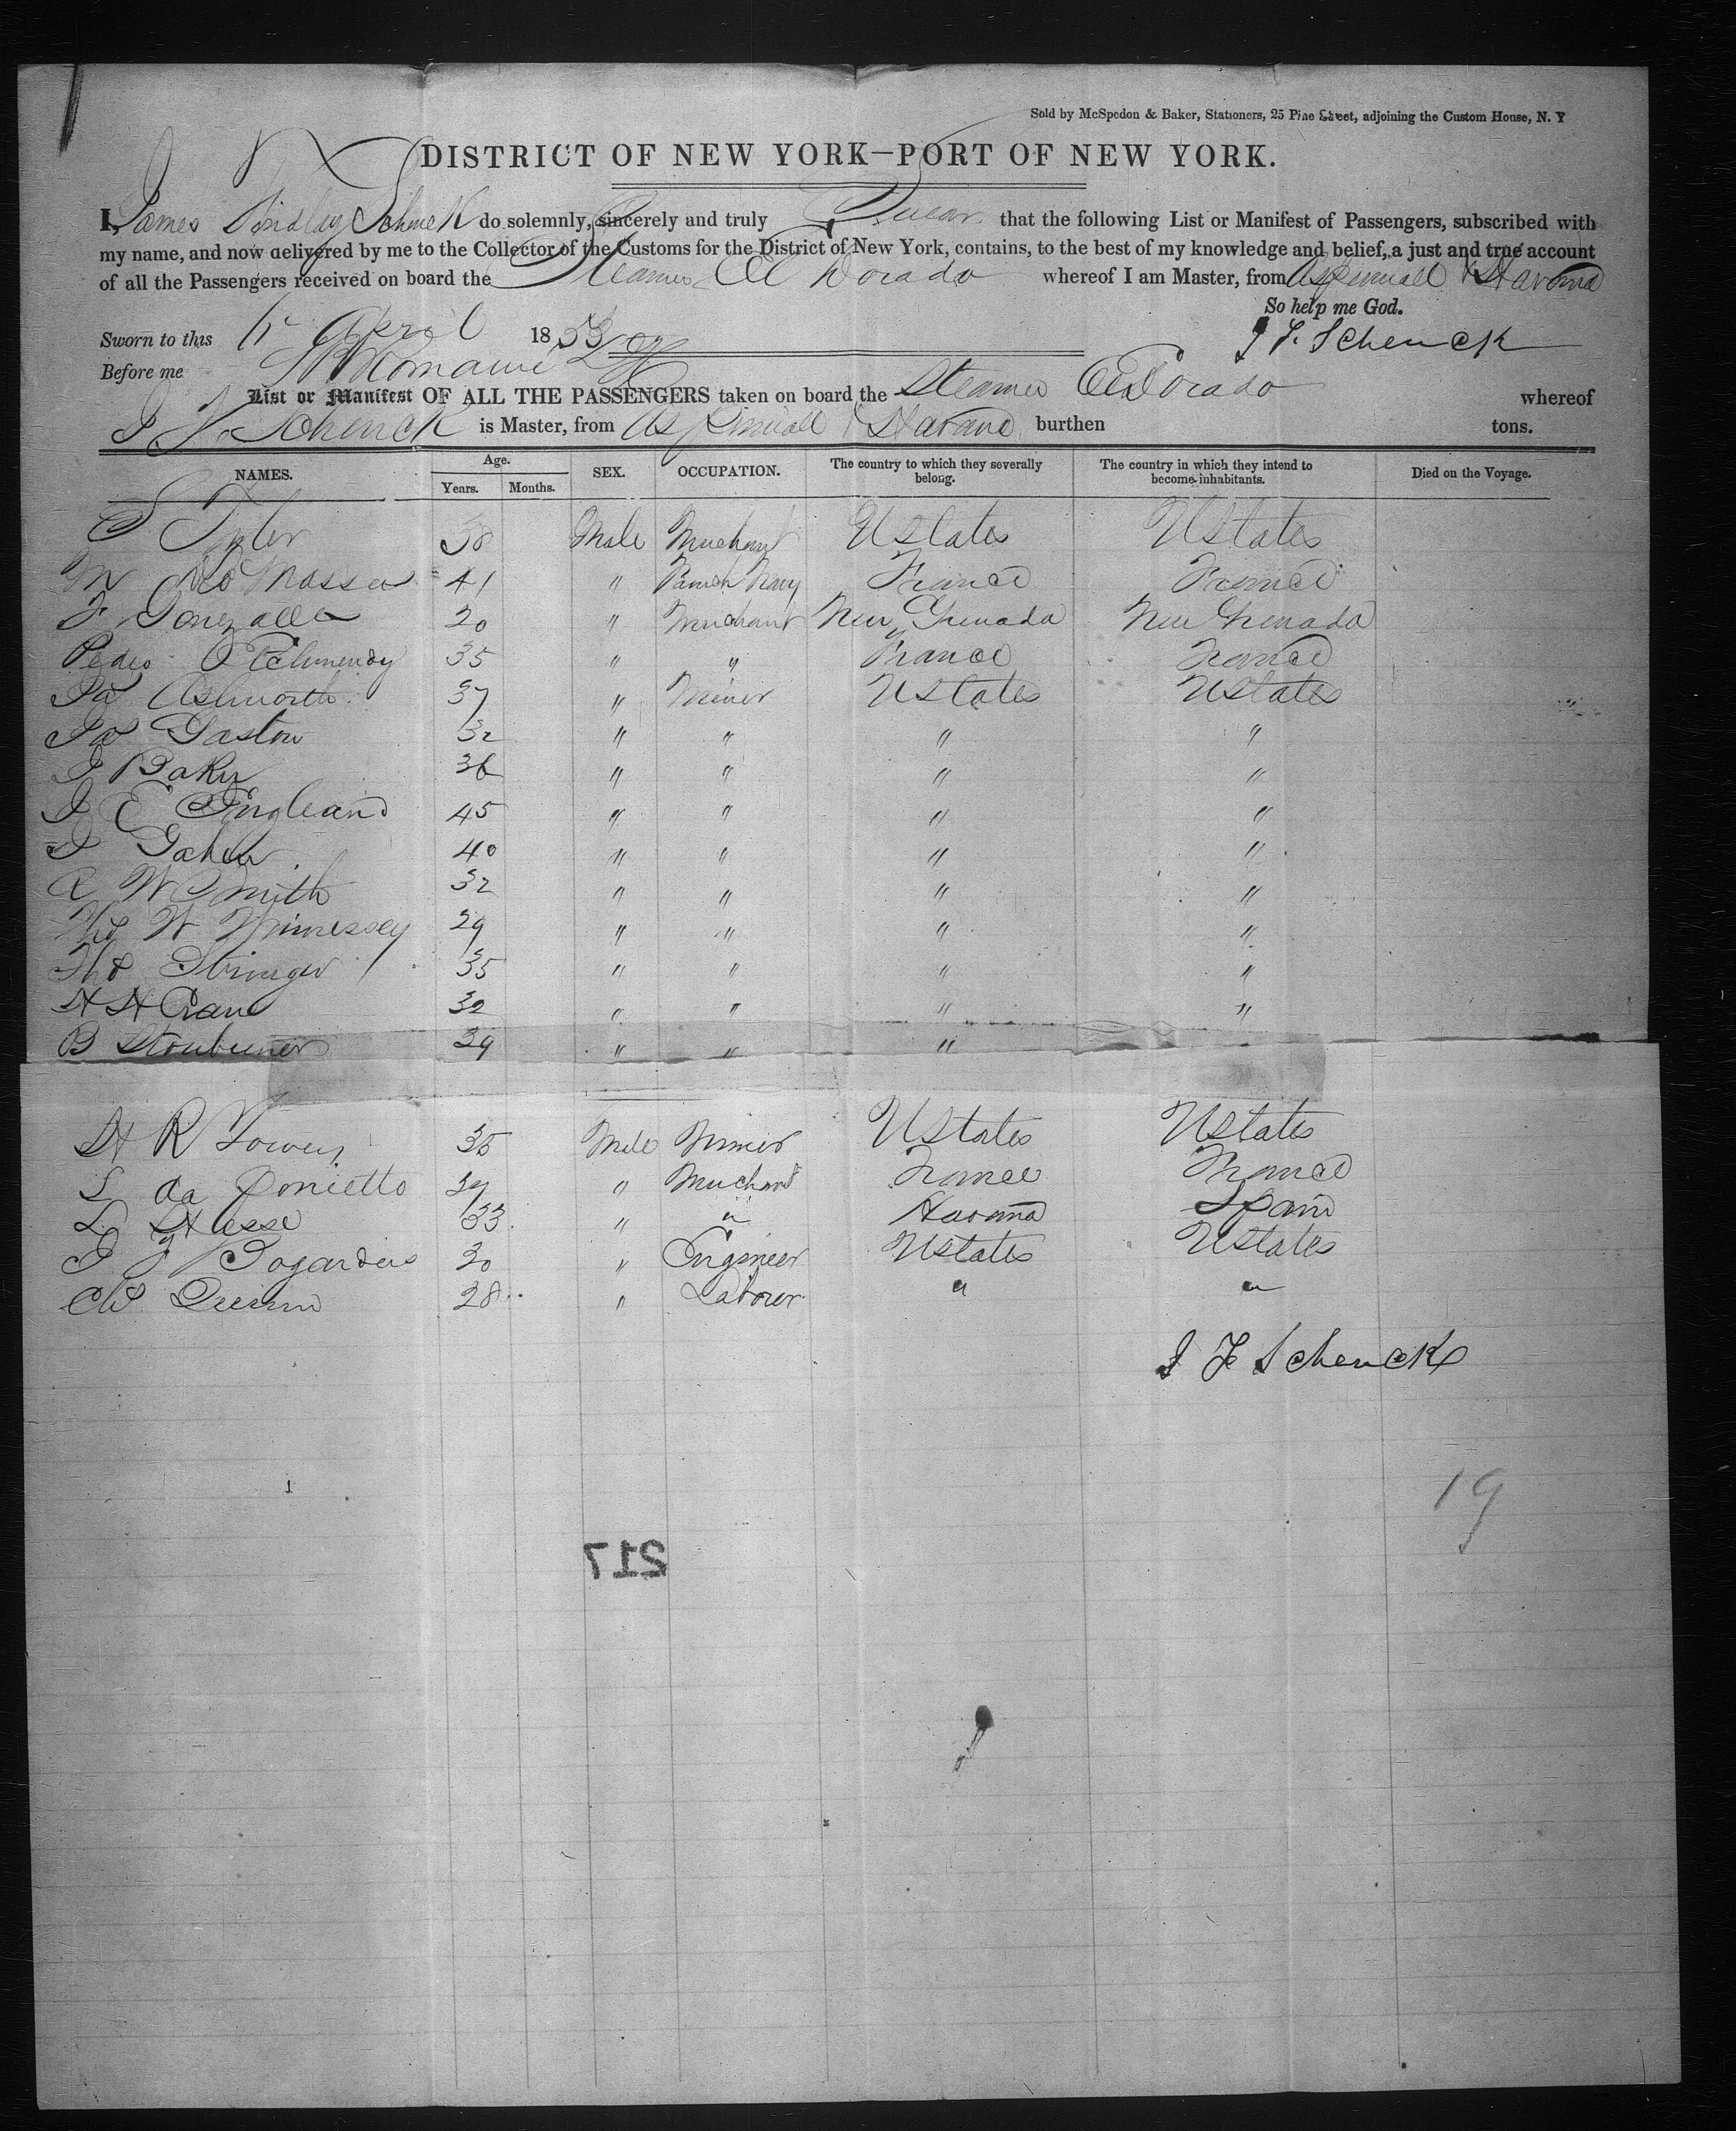 Sold by McSpedon & Baker, Stationers, 25 Pine Street, adjoining the Custom House, N. Y
DISTRICT OF NEW YORK—PORT OF NEW YORK.
I, James Findlay Schenck do solemnly, sincerely and truly Swear that the following List or Manifest of Passengers, subscribed with
my name, and now delivered by me to the Collector of the Customs for the District of New York, contains, to the best of my knowledge and belief, a just and true account
of all the Passengers received on board the Steamer El Dorado whereof I am Master, from Aspinwall & Havana
So help me God.
Sworn to this April 1853 J F Schenck
Before me
List or Manifest OF ALL THE PASSENGERS taken on board the Steamer El Dorado whereof
J F Schenck is Master, from Aspinwall & Havana burthen tons.
NAMES. Age. Years. Months. SEX. OCCUPATION. The country to which they severally belong. The country in which they intend to become inhabitants. Died on the Voyage.
S Tyler 38 Male Merchant UStates UStates
M 41 " Navy France France
F Gonzalles 20 " Merchant New Grenada New Grenada
Pedro 35 " " France France
Ja Ashworth 37 " Miner UStates UStates
Ja Gaston 32 " " " "
J Baker 36 " " " "
J E England 45 " " " "
J 40 " " " "
R W Smith 32 " " " "
Tho W 29 " " " "
Tho Stringer 35 " " " "
H H Crane 32 " " " "
B 29 " " "
H R 35 Male Miner UStates UStates
L da 37 " Merchant France France
L Hesse 33 " " Havana Spain
J J Bogardus 30 " Engineer UStates UStates
28 " Labourer " "
J F Schenck
19
217